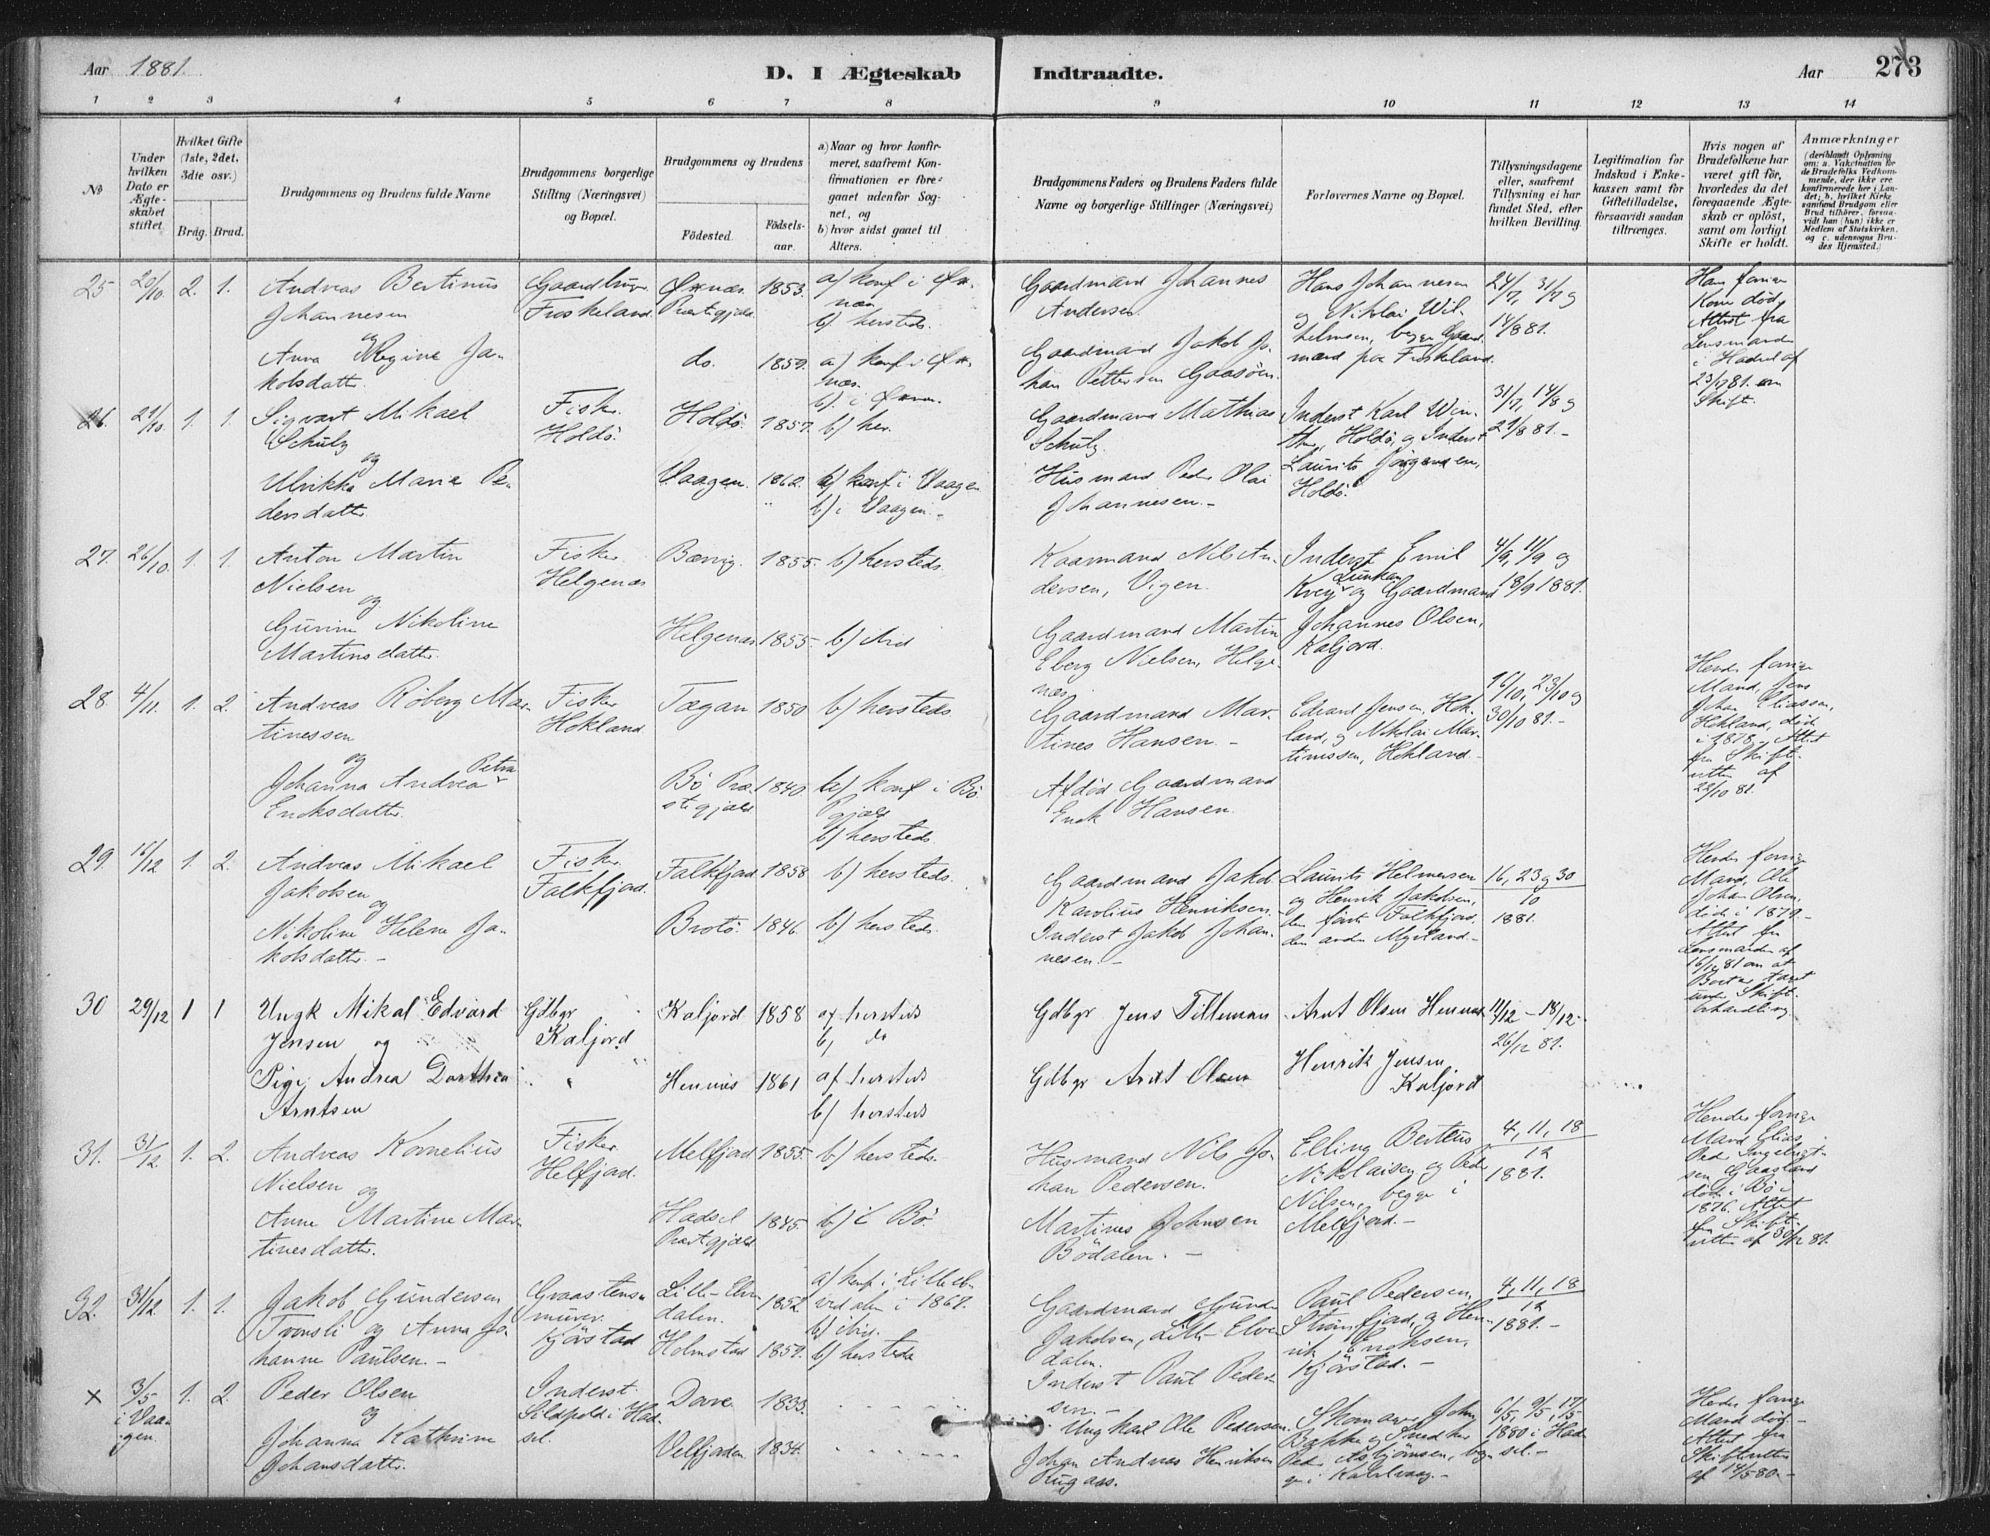 Aar 1881. D. I Ægteskab Indtraadte. Aar 273
1 2 3 4 5 6 7 8 9 10 11 12 13 14
No
Under hvilken Dato er Ægteskabet stiftet.
Hvilket Gifte (1ste, 2det, 3die osv.)
Brdg. Brud.
Brudgommens og Brudens fulde Navne
Brudgommens borgerlige Stilling (Næringsvei) og Bopæl.
Brudgommens og Brudens
Fødested. Fødselsaar.
a) Naar og hvor konfirmeret, saafremt Konfirmationen er foregaaet udenfor Sognet, og
b) hvor sidst gaaet til Alters.
Brudgommens Faders og Brudens Faders fulde Navne og borgerlige Stillinger (Næringsvei)
Forlovernes Navne og Bopæl.
Tillysningsdagene eller, saafremt Tillysning ei har fundet Sted, efter hvilken Bevilling.
Legitimation for Indskud i Enkekassen samt for Giftetilladelse, forsaavidt saadan tiltrænges.
Hvis nogen af Brudefolkene har været gift før, hvorledes da det foregaaende Ægteskab er opløst, samt om lovligt Skifte er holdt.
Anmærkninger (deriblandt Oplysning om: a. Vakcination for de Brudefolks Vedkommende, der ikke ere konfirmerede her i Landet; b. hvilket Kirkesamfund Brudgom eller Brud tilhører, forsaavidt han (hun) ikke er Medlem af Statskirken, og c. udensogns Brudes Hjemsted.)
25 20/10. 2. 1. Andreas Bertinus Johannesen
og
Anna Regine Jakobsdatter.
Gaardbruger Froskeland.
Øxnæs Præstegjeld 1853. a) konf i Øxnæs
b) hersteds.
do. 1859. a) konf i Øxnæs.
b) i Øxnæs.
Gaardmand Johannes Andersen
Gaardmand Jakob Johan Pettersen Gaasøen.
Hans Johannesen og Nikolai Wilhelmsen, begge Gaardmænd paa Froskeland.
24/7, 31/7 og 14/8 81.
Hans forrige Kone død, Attest fra Lensmanden i Hadsel af 23/7 81 om Skift.
26. 21/10. 1. 1. Sigvart Mikael Schulz
og
Ulrikke Maria Pedersdatter.
Fisker Holdø.
Holdø. 1857. b) her.
Vaagen. 1862. a) konf i Vaagen
b) i Vaagen.
Gaardmand Mathias Schulz.
Husmand Peder Olai Johannesen.
Inderst Karl Winther, Holdø, og Inderst Laurits Jørgensen, Holdø.
31/7, 14/8 og 21/8 81.
27. 26/10. 1. 1. Anton Martin Nielsen
og
Gurine Nikoline Martinsdatter.
Fisker Helgenæs
1855. b) hersteds.
Helgenæs 1855. b) ibid
Kaarmand Nils Andersen, Vigen.
Gaardmand Martin Eberg Nielsen, Helgenæs.
Inderst Emil Kvey og Gaardmand Johannes Olsen, Kaljord.
4/9, 11/9 og 18/9 1881.
28. 4/11. 1. 2. Andreas Røberg Martinessen
og
Johanna Andrea Petra Enoksdatter.
Fisker Hokland.
1850 b) hersteds
Bø Præstegjæld 1840. a) konf i Bø Pgjæld
b) hersteds
Gaardmand Martines Hansen.
Afdød Gaardmand Enok Hansen.
Edvard Jensen, Hokland, og Nikolai Martinussen, Hokland.
16/10, 23/10 og 30/10 81.
Hendes forrige Mand, Jens Johan Eliassen, Hokland, død i 1878, Attest fra Skifteretten af 28/10 81.
29. 16/12 1. 2. Andreas Mikael Jakobsen
og
Nikoline Helene Jakobsdatter.
Fisker. Falkfjord.
Falkfjord 1858 b) hersteds.
Brotø. 1846. b) hersteds.
Gaardmand Jakob Karolius Henriksen.
Inderst Jakob Johannesen.
Laurits Helmersen og Henrik Jakobsen, den første Falkfjord, den anden Myrland.
16, 23 og 30/10 1881.
Hendes forrige Mand, Ole Johan Olsen, død i 1879. Attest fra Lensmanden af 16/12 81 om at Boet er taget under Skiftebehandling
30 29/12 1 1 Ungk Mikal Edvard Jensen og
Pige Andrea Dorthea Arntsen
Gdbgr Kaljord
"
Kaljord 1858 a) hersteds
b) do
Hennes 1861 a) hersteds
b) hersteds
Gdbgr Jens Tilleman
Gdbgr Arnt Olsen
Arnt Olsen Hennes
Henrik Jensen Kaljord
11/12 – 18/12 26/12 81.
31. 31/12 1. 2. Andreas Kornelius Nielsen
og
Anne Martine Martinesdatter.
Fisker Melfjord.
Melfjord 1855. b) hersteds.
Hadsel Præstegjæld 1845. b) i Bø
Husmand Nils Johan Pedersen.
Martines Johnsen Bødalen.
Elling Berteus Nikolaisen og Peder Nilsen, begge i Melfjord.
4, 11, 18/12 1881.
Hendes forrige Mand Elias Peder Ingebrigtsen Gaasland døde i Bø i 1876. Attest fra Skifteretten af 30/12 81.
32. 31/12. 1. 1. Jakob Gundersen Tronsli og Anna Johanne Paulsen.
Graastensmurer. Kjørstad
Lille-Elvdalen. 1852. a) konf. i Lille-Elvedalen i 1867.
b) ibid.
Holmstad 1857. b) hersteds
Gaardmand Gunder Jakobsen, Lille-Elvedalen.
Inderst Paul Pedersen.
Paul Pedersen, Strømfjord, og Henrik Enoksen, Kjørstad.
4, 11, 18/12 1881.
x 3/5 i Vaagen. 1. 2. Peder Olsen
og
Johanna Kathrine Johansdatter.
Inderst. Sildpold i Hadsel.
Dovre 1833.
Velfjorden 1834.
Ungkarl Ole Pedersen.
Johan Andreas Henriksen Hugaas.
Skomager John Bakke og Snedker Peder Asbjørnsen, begge i Kabelvaag.
6/5, 9/5, 17/5 1880 i Hadsel.
Hendes forrige Mand død. Attest fra Skifteretten af 14/5 80.